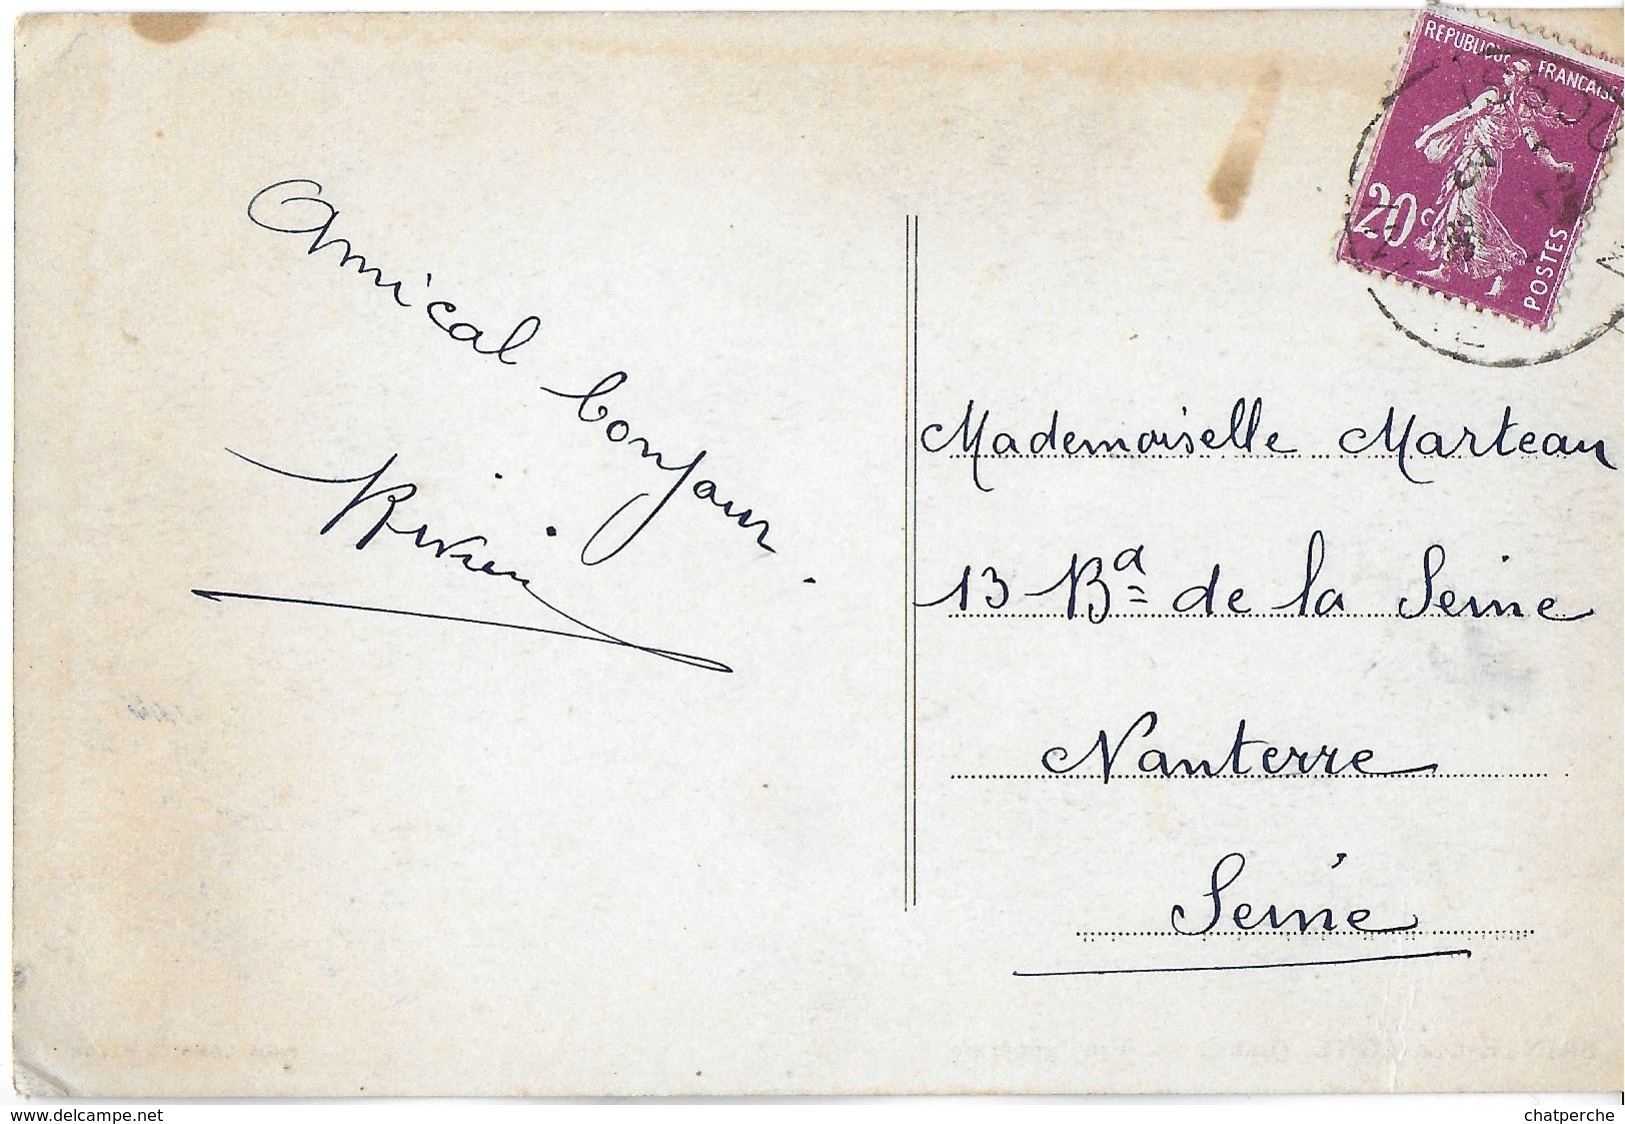 Amical bonjour.
REPUBLIQUE FRANCAISE
20c
POSTES
Mademoiselle Marteau
13 Bd de la Seine
Nanterre
Seine
www.delcampe.net
chatperche